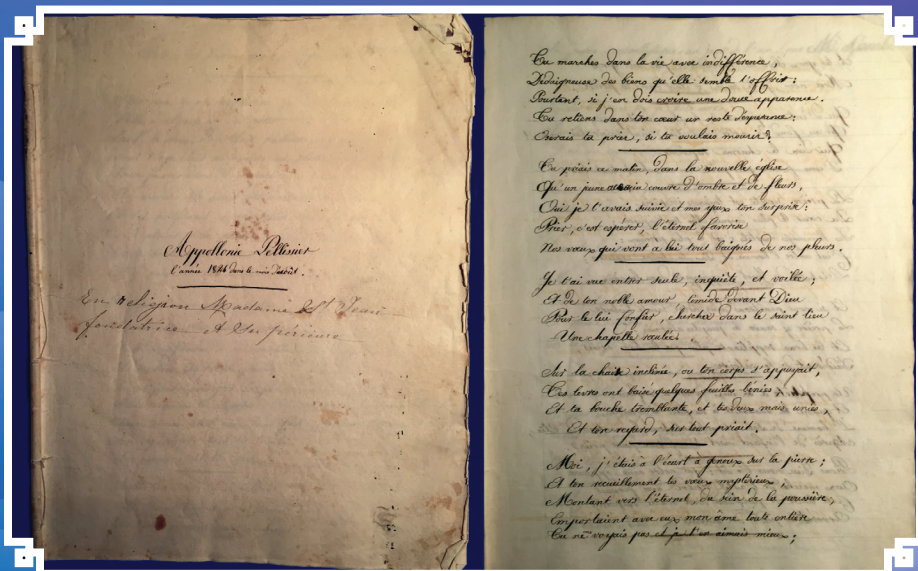 Appollonie Pellissier
l'année 1846 dans le mois
En religion Madame St Jean
fondatrice et Supérieure
Tu marches dans la vie avec indifférence,
Dédaigneuse des biens qu'elle semble t'offrir;
Pourtant, si j'en dois croire une douce apparence.
Tu retiens dans ton cœur un reste d'espérance;
Oserais tu prier, si tu voulais mourir?
Tu priais ce matin, dans la nouvelle église
Qu'un jeune couvre d'ombre et de fleurs,
Oui je t'avais suivie et mes yeux t'on surprise:
Prier, c'est espérer, l'éternel favorise
Nos vœux qui vont à lui tout baignés de nos pleurs.
Je t'ai vue entrer seule, inquiète, et voilée;
Et de ton noble amour, timide devant Dieu
Pour le lui confier, chercher dans le saint lieu
Une chapelle
Sur la chaise inclinée, ou ton corps s'appuyait,
Tes levres ont baisé quelques feuilles bénies,
Et ta bouche tremblante, et tes deux mais unies,
Et ton regard, surtout priait.
Moi, j'étais à l'écart à genoux sur la pierre;
Et ton recueillement tes vœux mystérieux,
Montant vers l'éternel du sein de la poussière,
Emportaient avec eux mon âme toute entière
Tu ne voyais pas et je t'en aimais mieux;